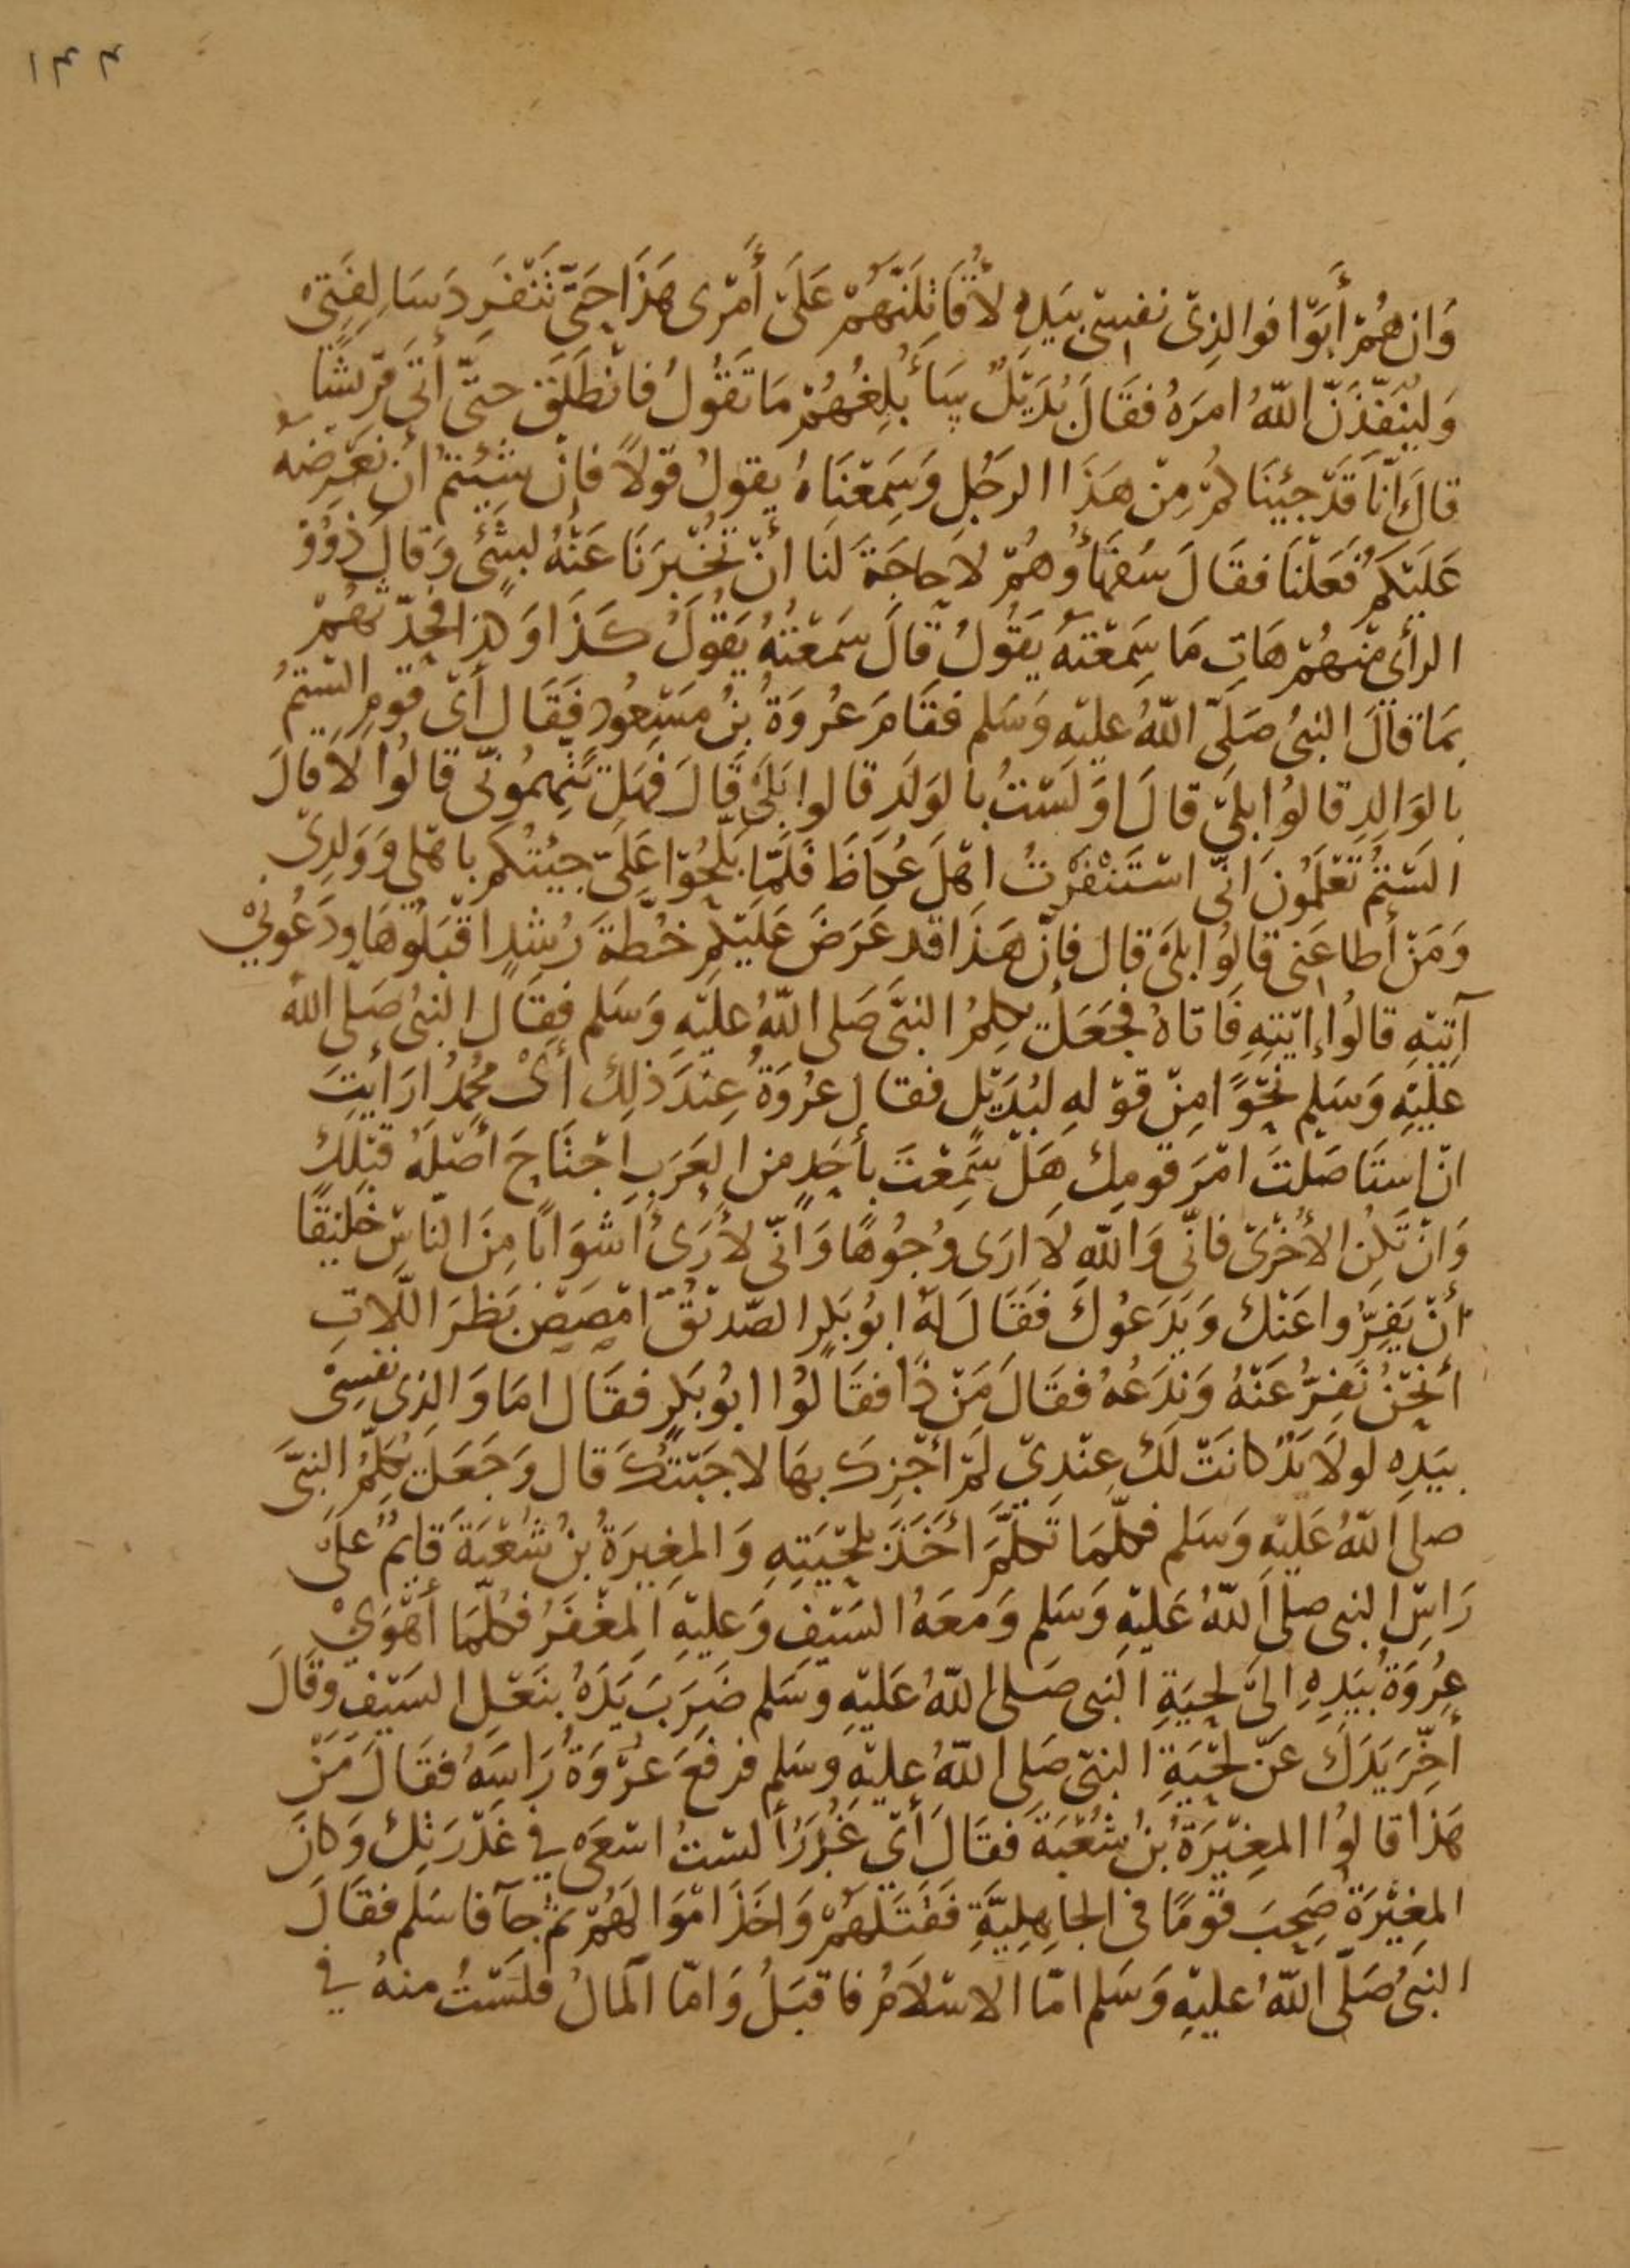 ١٣٣
وَان هُمْ أَبَوْا فوالذِىْ نفسِىْ بيَدِهِ لأُقَاتِلَنَّهُمْ عَلَىْ أَمْرِى هَذَا حَتَّى تَنْفَرِدَ سَالِفَتِىْ
وَليُنَفِّذَنَّ اللّهُ امرَهُ فقَالَ بُدَيْلٌ سَأُبَلِغُهُمْ مَا تَقُولُ فانْطَلَقَ حتىّ أتَى قرَيْشًا
قالَ اِنّا قَدْ جِئينَاكُمْ مِنْ هَذَا الرَجُلِ وَسَمِعْنَاهُ يقولُ قوْلاً فإنْ شِئْتمُ أنْ نَعْرِضَهُ
عَلَيْكمُ فَعَلْنَا فقَالَ سُفهَأُوهُمْ لاَ حاجَة لَنا أنْ تُخْبِرَنَا عَنْهُ بشَىْءٍ وَقالَ ذوُوْ
الرأىِ مِنْهُمْ هَاتِ مَا سَمِعْتَهُ يَقُولُ قالَ سَمعْتُهُ يَقُولُ كذَا وَكذا فحَدّثهُمْ
بمَا قالَ النبىُ صَلّىَ اللّهُ عليْه وَسَلم فقَامَ عُروَةُ بنُ مَسْعُود فَقَال أَىْ قومِ السْتمُ
بالوَالِدِ قالوُا بلىَ قالَ اوَلسْتُ بالوَلَدِ قالوا بَلىَ قَالَ فهَلْ تتهِمُونّى قالوُا لاَ قالَ
السْتمُ تَعْلَمُونَ انّى اسْتَنْفرْتُ اهْلَ عُكاظَ فَلَمّا بَلّحُوْا عَلَىّ جيئتُكمْ باهْلِي وَوَلدِىْ
وَمَنْ أطاعَنى قالوُا بلىَ قال فإنّ هَذَا قد عَرَضَ عَلَيْكمْ خُطّةَ رُشْدٍ اقبَلُوهَا ودَعُونِيْ
آتِيْهِ قالوُا إيْتهِ فَاتاهُ فجَعَلَ يكلِمُ النبىَّ صَلى اللّهُ عليْهِ وَسَلم فقَال النبىُ صَلى اللهُ
عليْهِ وَسَلم نحْوًا مِنْ قوْلهِ لبُدَيْل فقال عرُوَةُ عِنْدَ ذلِكَ أىْ محُمدُ ارَأيْتَ
ان استَاصَلتَ امْرَ قومِكَ هَلْ سَمِعْتَ بأحَدٍ من العَرَبِ اجْتَاحَ أصْلَهُ قبْلَكَ
وَانْ تَكُن الأُخْرَىْ فانّى وَاللّهِ لاَ ارَى وُجُوهًا وَانّى لأَرَىْ اشوَابًا مِنَ الناسْ خَليْقًا
أنْ يَفِرُّوا عَنْكَ وَيَدَعُوكَ فَقَالَ لهُ ابُو بَكرِ الصّديْقُ امْصَصْ بَظرَ اللَّلاتِ
أنَحْنُ نَفِرُّ عَنْهُ وَنَدَعُهُ فقَالَ مَنْ ذَا فقَالوُا ابُو بَكرٍ فقَال امَا وَالذِى نفسِىْ
بيَدِهِ لولاَ يَدٌ كانَتْ لَكَ عِنْدِىْ لَمْ أَجْزِكَ بهَا لاجَبْتُكَ قال وَجَعَلَ يُكلِّمُ النبىَّ
صلى اللّهُ عَليْهِ وَسَلم فكلّمَا تكلّمَ أخَذَ بلحْيَتِهِ وَالمغِيرَةُ بنُ شُعْبَةَ قايِمٌ علىَ
رَاسِ النبى صلى اللّهُ عَليْهِ وَسَلم وَمَعَهُ السَيْفِ وَعليْهِ المِغْفَرُ فكلّمَا أَهْوَيْ
عُرُوَةُ بيَدِهِ الىَ لحيَةِ النبى صَلى اللّهُ عَليْهِ وَسَلم ضَرَبَ يَدَهُ بنَعْلِ السَيْفِ وقَالَ
أَخِّرْ يَدَكَ عَنْ لحْيَةِ النبىّ صَلى اللّهُ عليْهِ وسَلم فرفعَ عرْوَةُ رَاسَهُ فقَالَ مَنْ
هَذا قالوُا المغِيْرَةُ بنُ شُعْبَةَ فقَالَ أَىْ غُدَرُ الستُ اسْعَى في غَدْرَتِكَ وَكانَ
المغِيْرَةُ صَحِبَ قوْمًا في الجَاهِلِيَّةِ فقَتَلهُمْ وَاخَذَ امْوَالَهُمْ ثمّ جآَ فاسَلم فقَالَ
النبىُ صَلّى اللّهُ عليْهِ وَسَلم امّا الاسْلاَمُ فاقبَلُ وَامّا اَلمالُ فلَسْتُ منهُ في